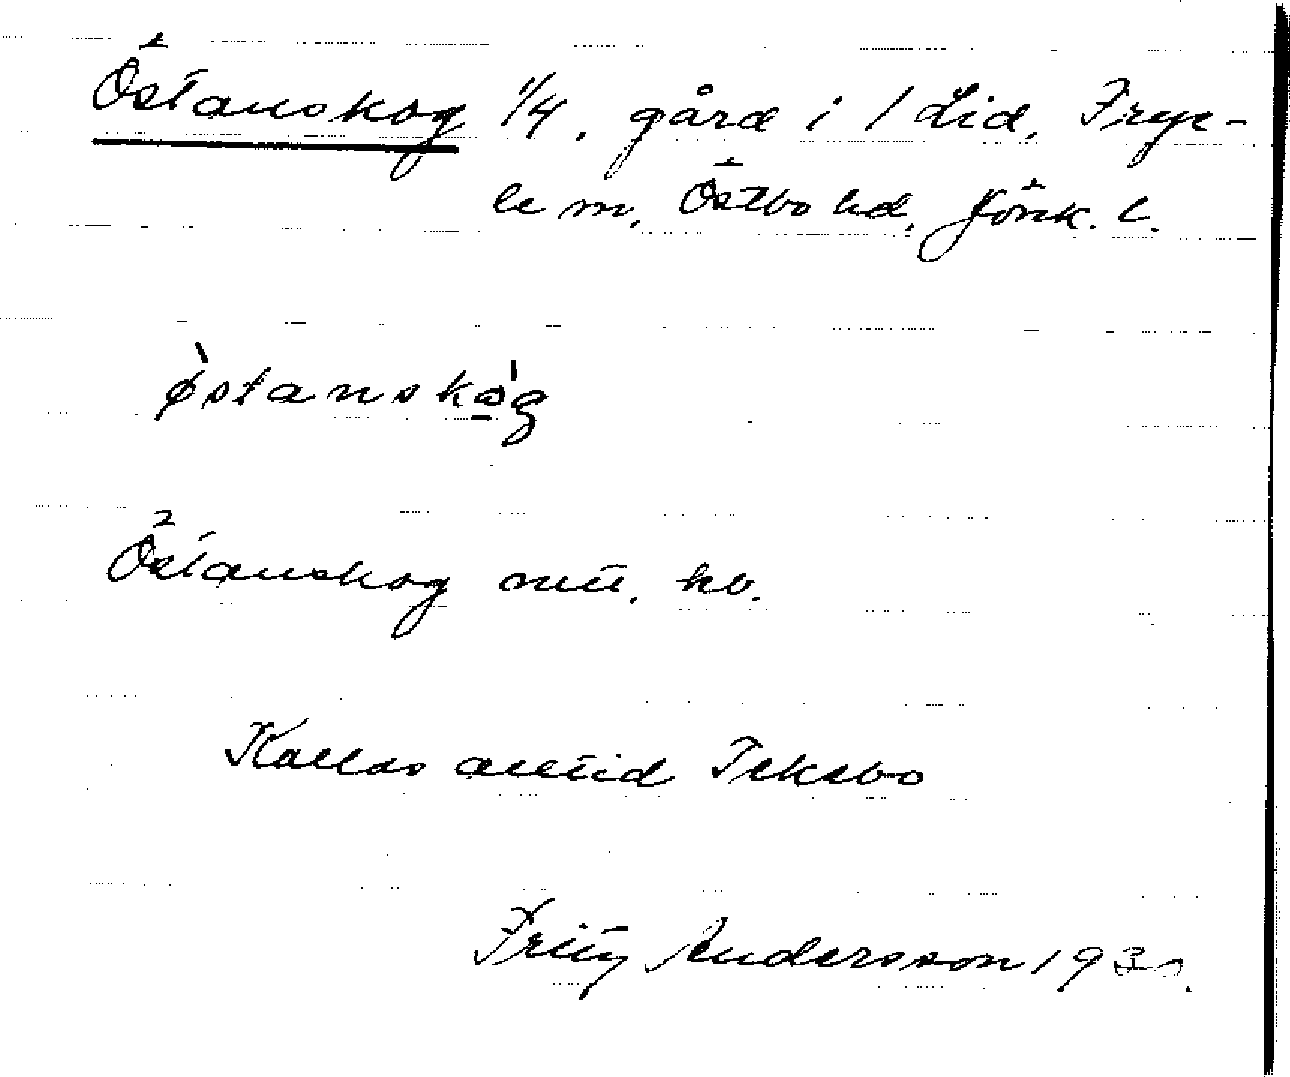 Östanskog 1/4, gård i 1 Lid, Frye-
le sn, Östbo hd, Jönk. l.
ø̀stanskó̠g
Östanskog mtl. kb.
Kallas alltid Tekebo
Fritz Andersson 193